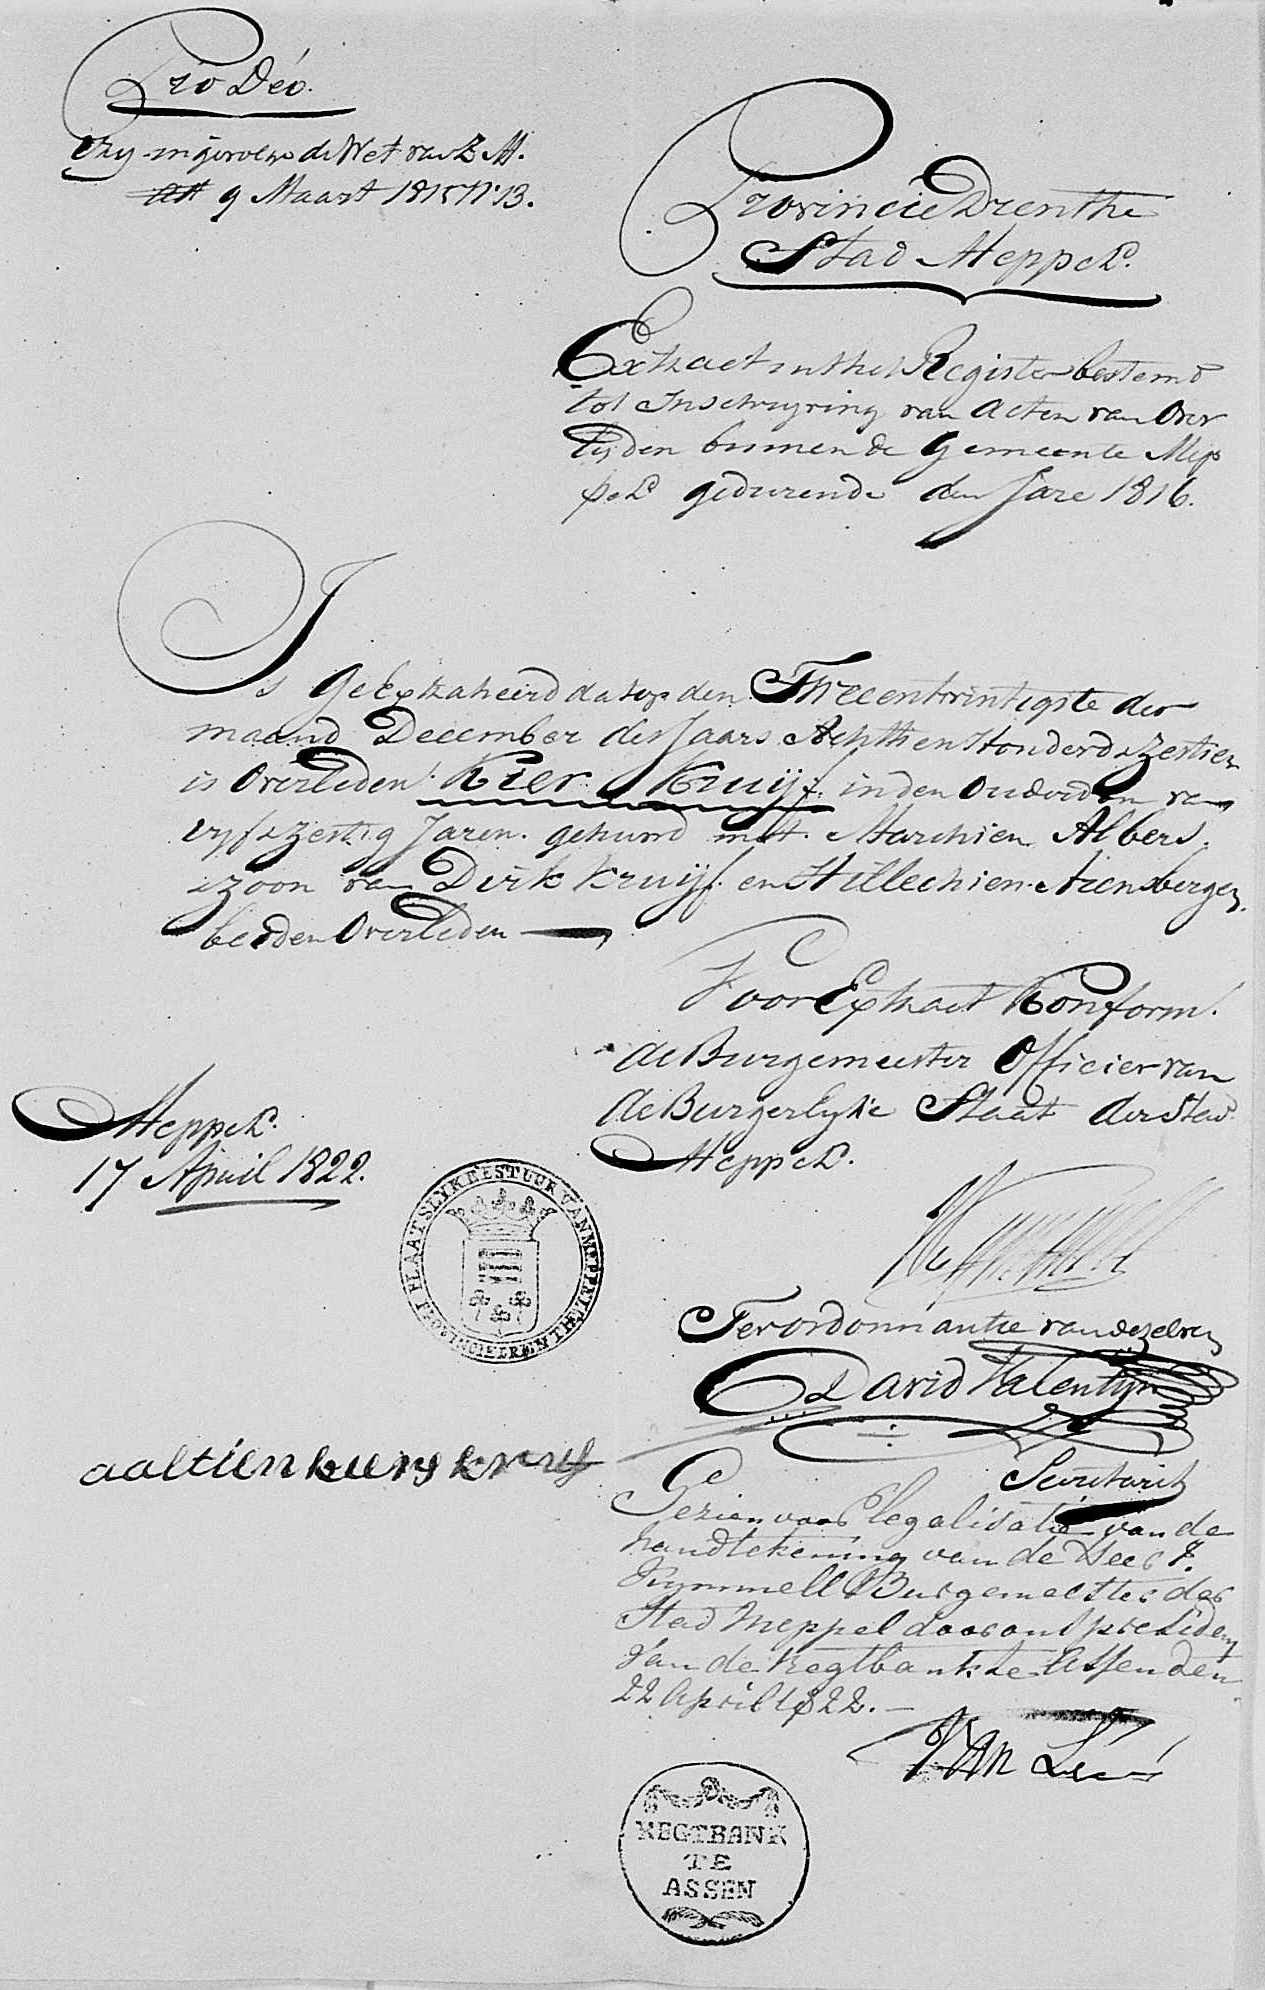 Pro Déo.
Vry ingevolge de Wet van Z M.
9 Maart 1815 N° 13.
Provincie Drenthe
Stad Meppel.
Extract uit het Register bestemd
tot Inschryving van Acten van Over
lijden binnen de Gemeente Mep
pel gedurende den Jare 1816.
Is geëxtraheerd dat op den Tweeentwintigste der
maand December des Jaars Achttien Honderd & Zestien
is Overleden Hier Kruijf in den Ouderdom van
vyf & zestig Jaren. gehuwd met Marchien Albers.
zoon van Dirk Kruijf en Hillechien
beiden Overleden
Voor Extract Konform.
de Burgemeester Officier van
de Burgerlyke Staat der Stad
Meppel.
Meppel.
17 April 1822.
PLAATSLYK BESTUUR VAN MEPPEL
PROVINCIE DRENTHE
Ter ordonnantie van dezelven
David Valentyn
Secretaris
aaltien kruyf
Gezien voor legalisatie van de
handtekening van de Heer
Kymmell Burgemeester der
Stad Meppel door ons president
Van de Regtbank te Assen den
22 April 1822.
Van
REGTBANK
TE
ASSEN